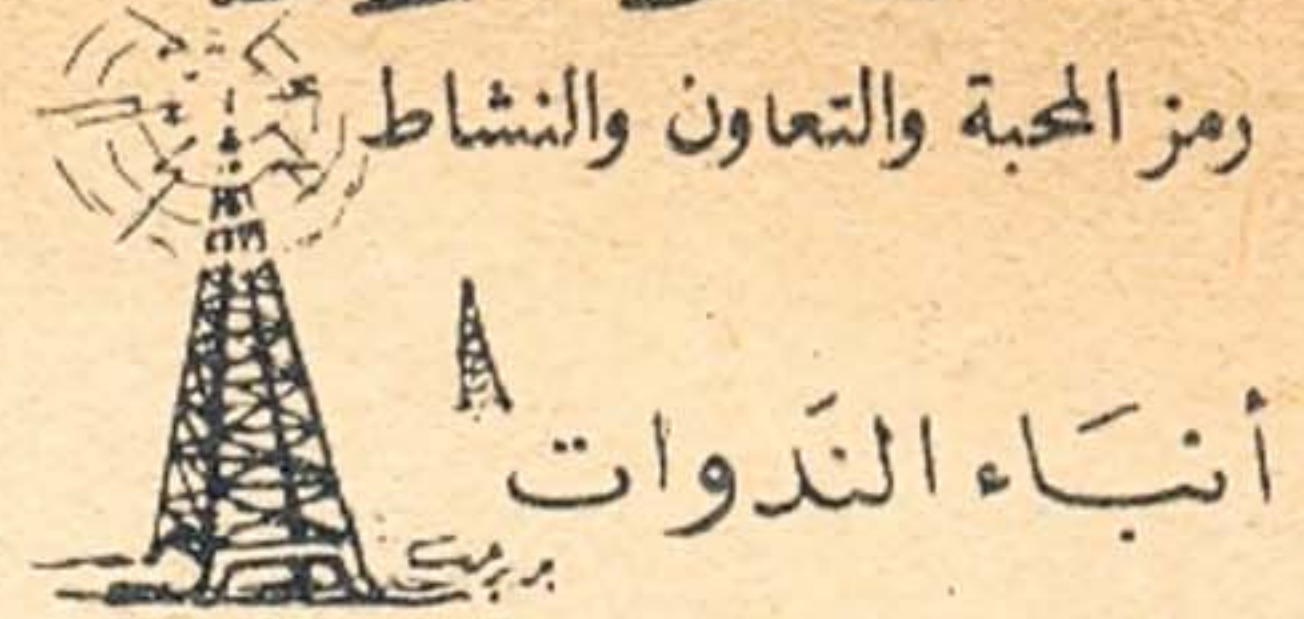 رمز المحبة والتعاون والنشاط
أنبَاء الندَوات